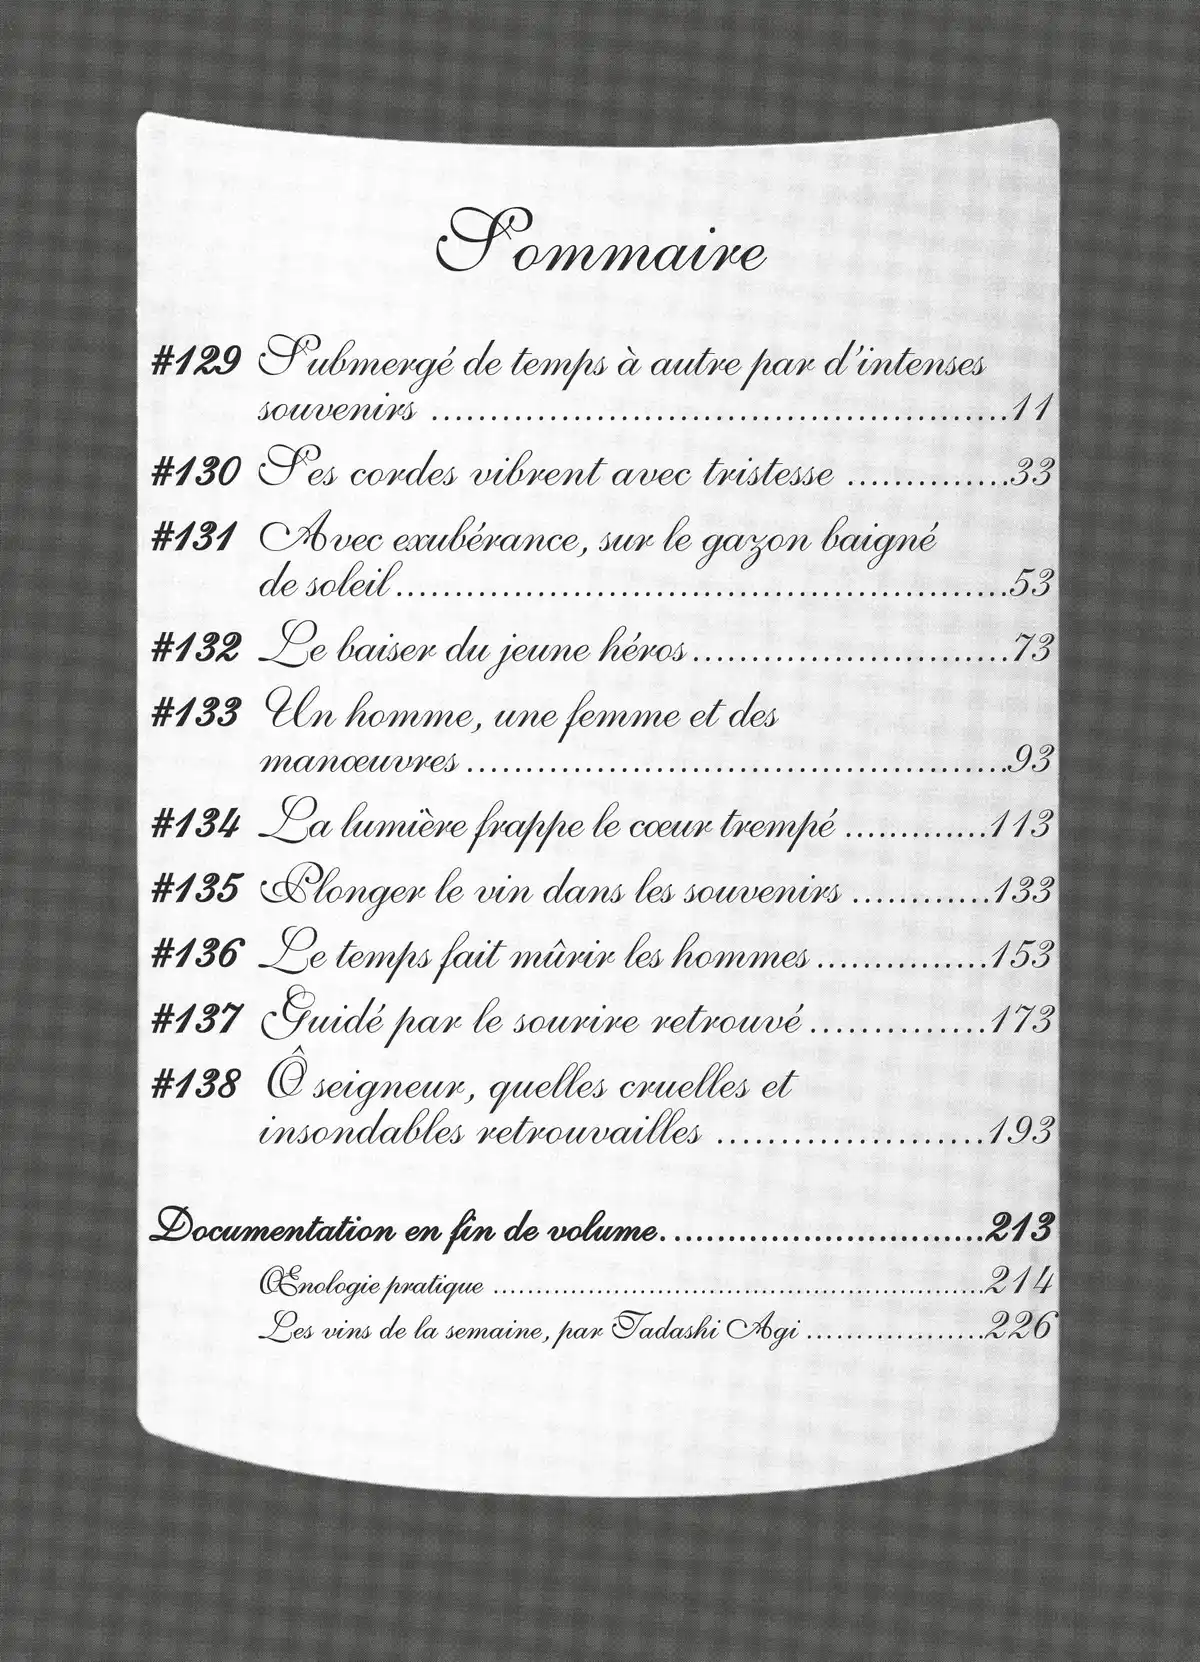 Sommaire
#129 Submergé de temps à autre par d'intenses
souvenirs ................................................11
#130 Ses cordes vibrent avec tristesse ..............33
#131 Avec exubérance, sur le gazon baigné
de soleil....................................................53
#132 Le baiser du jeune héros...........................73
#133 Un homme, une femme et des
manœuvres..............................................93
#134 La lumière frappe le cœur trempé .............113
#135 Plonger le vin dans les souvenirs ............133
#136 Le temps fait mûrir les hommes...............153
#137 Guidé par le sourire retrouvé...............173
#138 Ô seigneur, quelles cruelles et
insondables retrouvailles ......................193
Documentation en fin de volume..............................213
Œnologie pratique ......................................................214
Les vins de la semaine, par Tadashi Agi ..................226